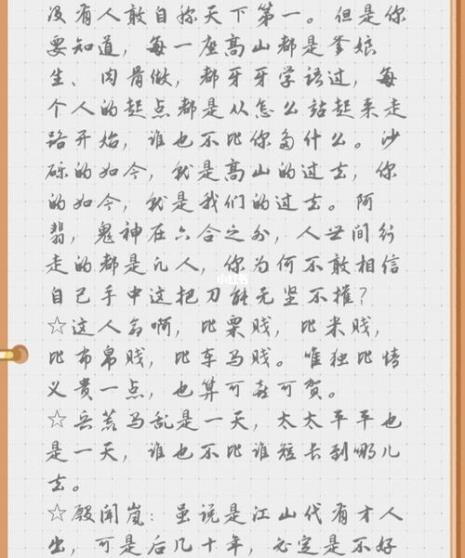 没有人敢自称天下第一。但是你
要知道，每一座高山都是爹娘
生、肉骨做，都牙牙学语过，每
个人的起点都是从怎么站起来走
路开始，谁也不比你多什么。沙
砾的如今，就是高山的过去，你
的如今，就是我们的过去。阿
翡，鬼神在六合之外，人世间行
走的都是凡人，你为何不敢相信
自己手中这把刀能无坚不摧？
小红书
☆这人命啊，比粟贱，比米贱，
比布帛贱，比车马贱。唯独比情
义贵一点，也算可喜可贺。
☆兵荒马乱是一天，太太平平也
是一天，谁也不比谁短长到哪儿
去。
☆殷闻岚：虽说是江山代有才人
出，可是后几十年，必定是不好